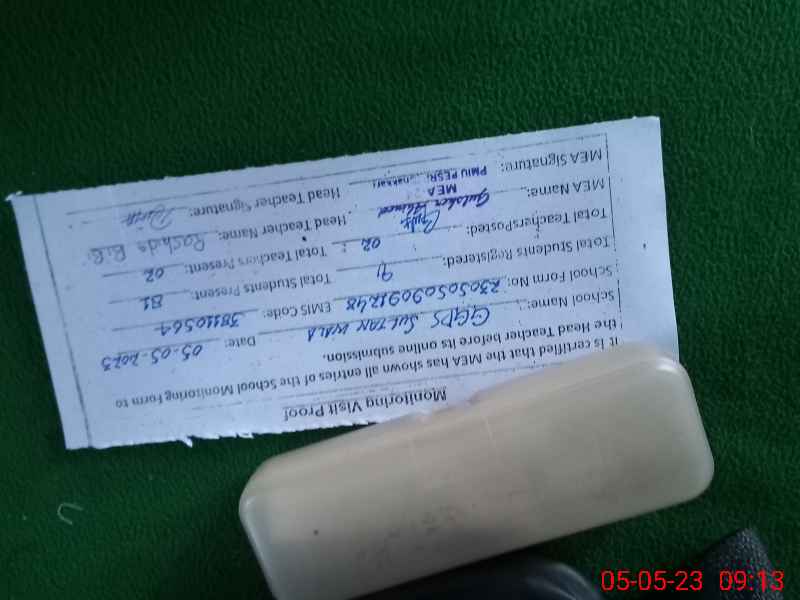 Monitoring Visit Proof
It is certified that the MEA has shown all entries of the School Monitoring Form to
the Head Teacher before its online submission.
School Name: GGPS SULTAN WALA Date: 05-05-2023
School Form No: EMIS Code: 38110564
Total Students Registered: 91 Total Students Present: 81
Total Teachers Posted: 02 Total Teachers Present: 02
MEA Name: Gulsher Ahmed Head Teacher Name: Rashda B.B
MEA Signature: Head Teacher Signature:
MEA
PMIU PESRP
05-05-23 09:13